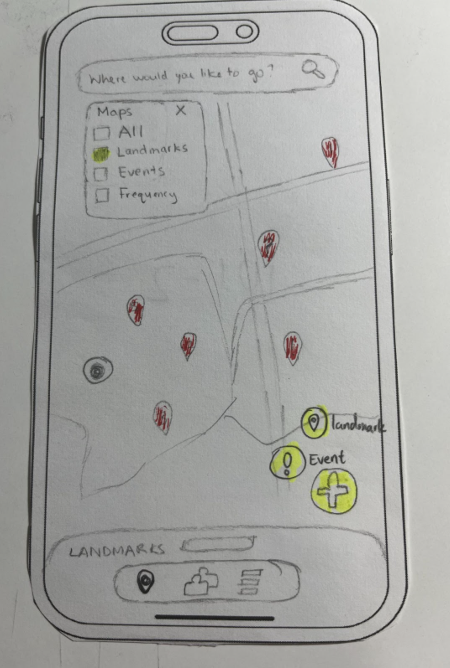 Where would you like to go?
Maps X
All
Landmarks
Events
Frequency
landmark
Event
LANDMARKS